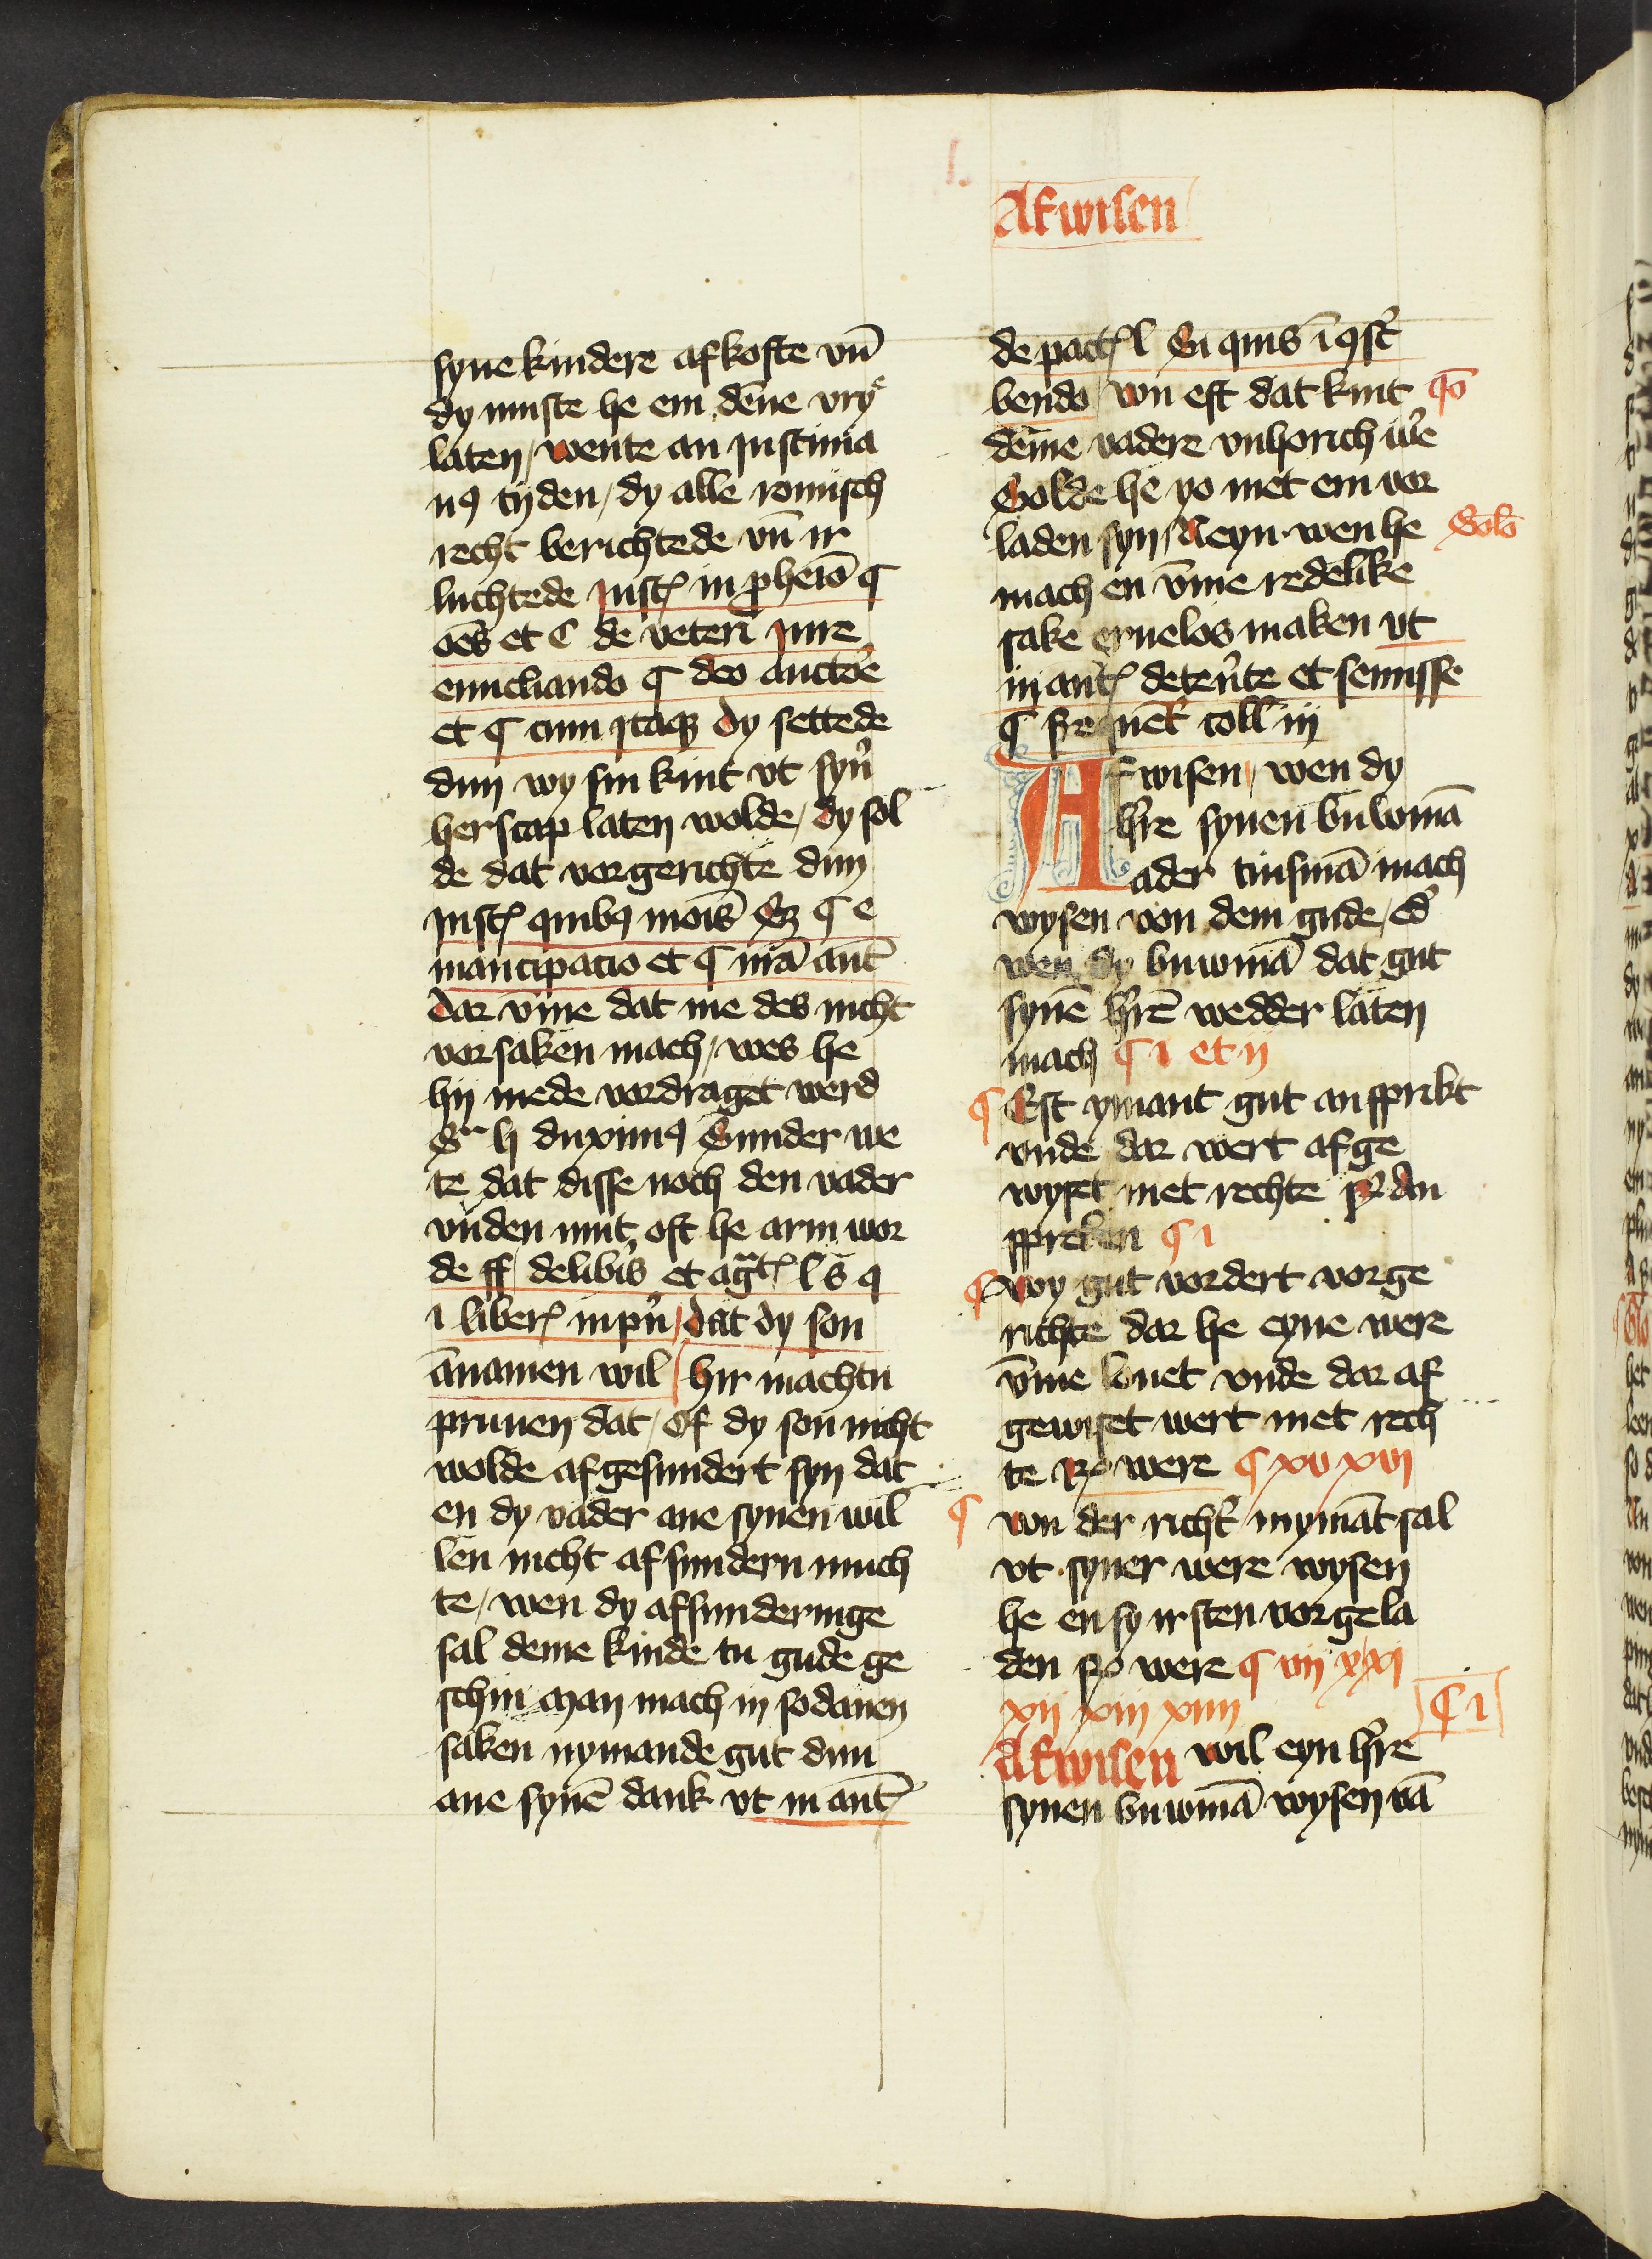 Afwisen
syne kindere afkofte vn̄
dy muste he em deme vrye
laten / wente an Justinia
nꝯ tyden / dy alle romisch
recht berichtede vn̄ ir
luchtede Just͛ in ꝓhemō ¶
oēs et C de veteri Jure
enucliando ¶ deo auctōe
et ¶ cum Itaqꝫ dy settede
dun wy sin kint vt syn̄
herscap laten wolde / dy sol
de dat vorgerichte dun
Just͛ quibꝯ mois ¶ e
mancipacio et ¶ mā ant̄
dar vm̄e dat me des nicht
vorsaken mach / wes he
hy mede vordraget werd
h duximꝯ Sunder we
te dat disse noch den vader
vuden mut oft he arm wor
de ff delibis et agt͛ l s q
i liber͛ inpn̄ / dat dy son
ānamen wil hir machtu
pruuen dat / Of dy son nicht
wolde afgesundert syn dat
en dy vader ane synen wil
len nicht afsundern much
te / wen dy afsunderinge
sal deme kinde tu gude ge
schin man mach in sodanen
saken nymande gut dun
ane synē dank vt in aut͛
de pact͛ l Si quis ī ꝯsc̄
bendo / von eft dat kint
qō
deme vadere vnhorich we͛
Solde he yo met em vor
laden syn / Neyn wen he
Solō
mach en vm̄e redelike
sake eruelos maken vt
in aut͛ detern̄te et semisse
¶ frequēt͛ coll iij
Afwisen / wen dy
hr̄e synen buwmā
ader tinsmā mach
wysen von dem gude / ed͛
wen dy buwmā dat gut
synē hr̄en wedder laten
mach ¶ i et ij
¶ Est ymant gut ansprikt
vnde dar wert afge
wyset met rechte An
spreken ¶ i
¶ wy gut vordert vorge
richte dar he eyne were
vm̄e louet vnde dar af
gewiset wert met rech
te R̄ were ¶ xv xvi
¶ von der richt͛ nymāt sal
vt syner were wysen
he en sy irsten vorgela
den R̄ were ¶ viij x xi
xij xiij xiiij
¶ i
Afwisen wil eyn hr̄e
synen buwmā wysen vā